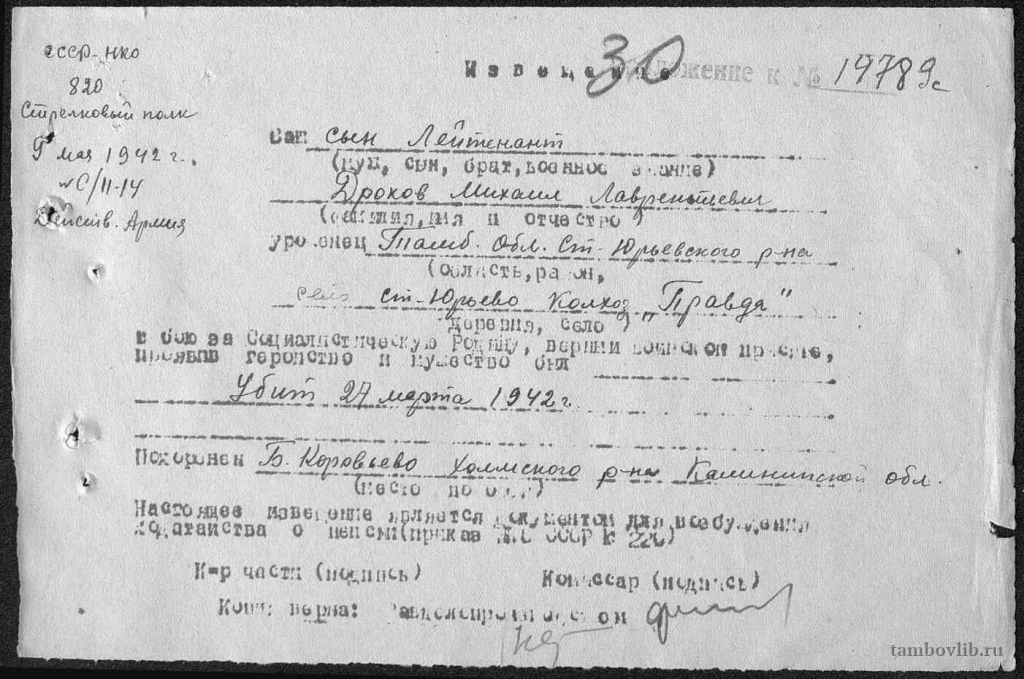 СССР-НКО
820
Стрелковый полк
9 мая 1942 г.
№С/11-14
Действ. Армия
30
Извещение
Приложение к № 14789с
Ваш сын Лейтенант
(муж, сын, брат, военное звание)
Дрохов Михаил Лаврентьевич
(фамилия, имя и отчество)
уроженец Тамб. Обл. Ст-Юрьевского р-на
(область, район,
село Ст-Юрьево Колхоз "Правда"
деревня, село)
в бою за Социалистическую Родину, верный воинской присяге,
проявив геройство и мужество был
Убит 27 марта 1942 г
Похоронен Б. Коровьево Холмского р-на Калининской обл.
(место
Настоящее извещение является документом для возбуждения
ходатайства о пенсии (приказ НКО СССР № 220)
К-р части (подпись) Комиссар (подпись)
Копия верна:
tambovlib.ru